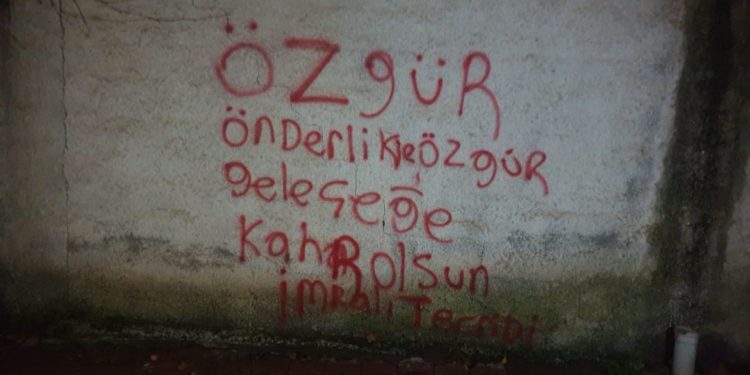 ÖZgÜR
ÖnDerlikle ÖzgÜR
geleçeğe
KahRolsun
imRali Tecridi